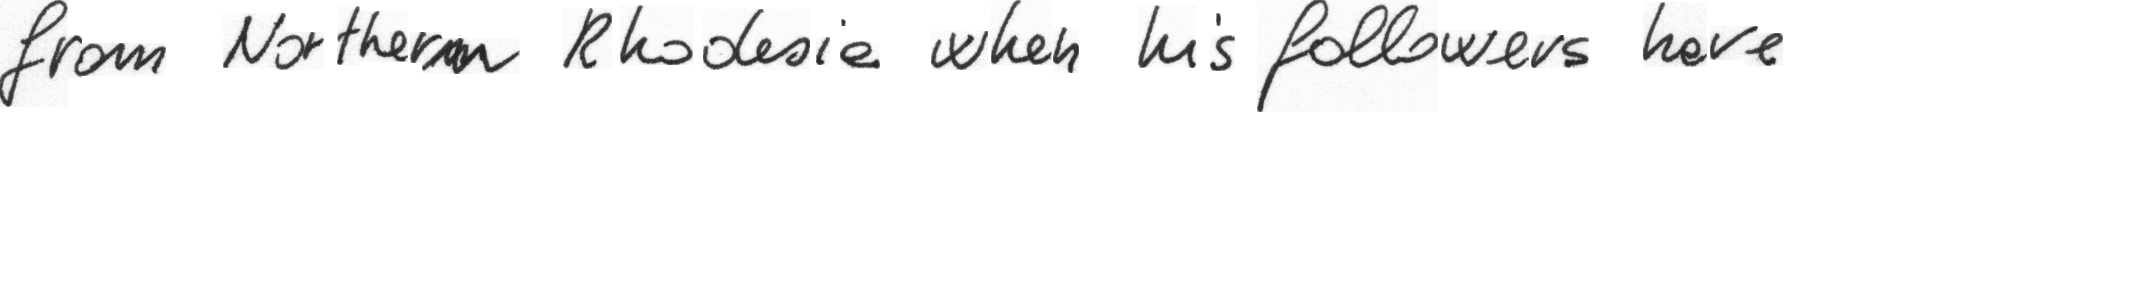 from Northern Rhodesia when his followers have